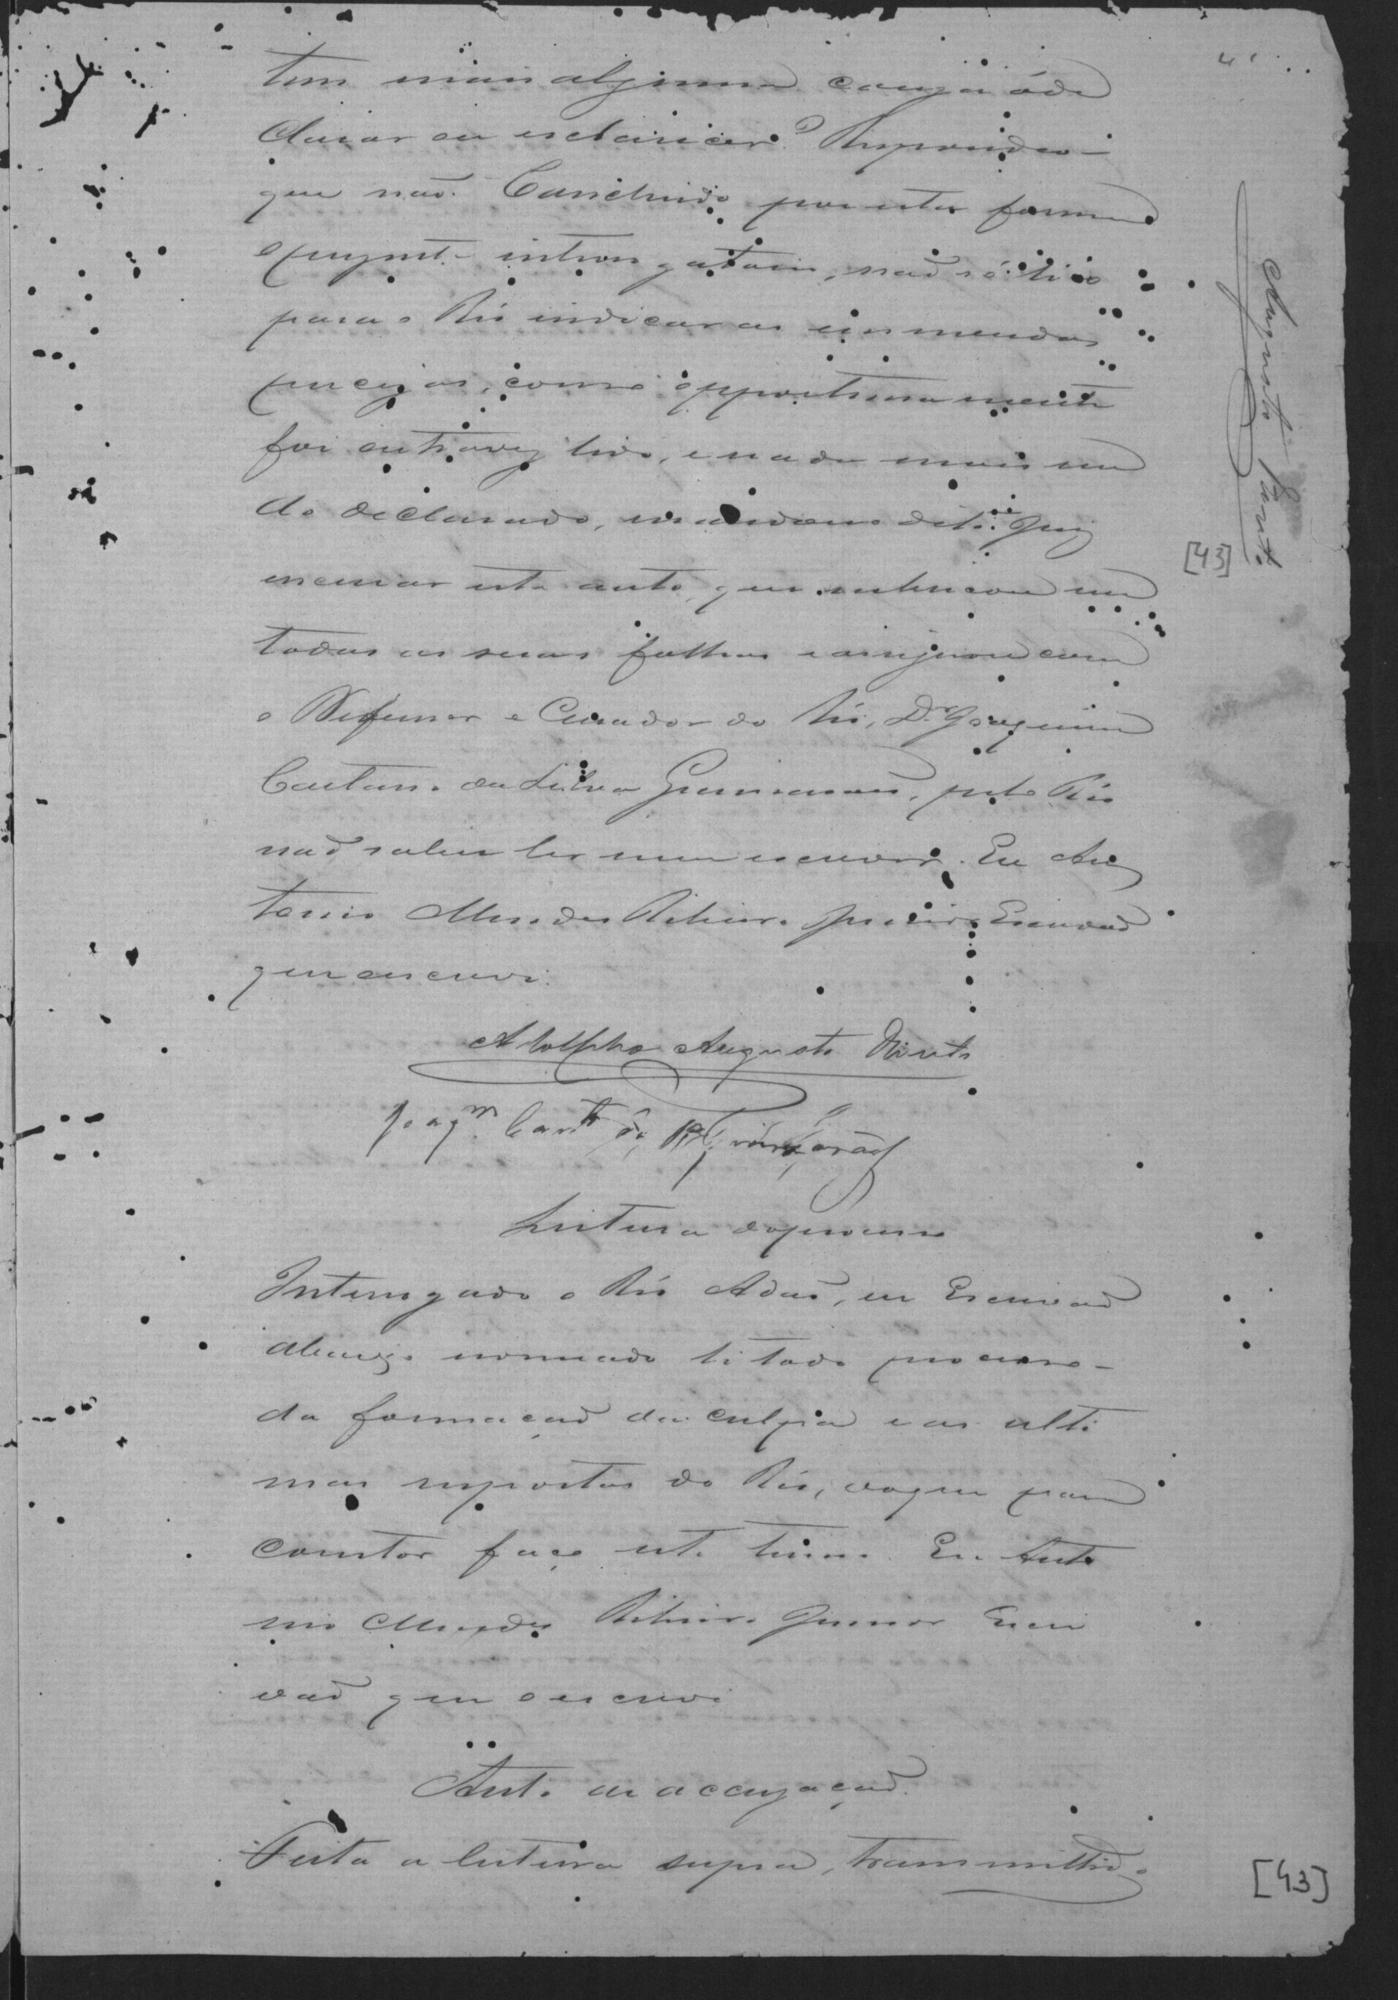 tem mais alguma cousa á de
clarar ou esclarecer? Respondeo
que não. Concluido por esta forma
o presente interrogatorio, não só lido
para o Réo indicar as emmendas
precizas, como opportunamente
foi outra vez lido, e nada mais sen
do declarado, mandou dito Juiz
encerrar este auto, que rubricou em
todas as suas folhas e assignou com
o Defensor e Curador do Réo, Dr. Joaquim
Caetano da Silva Guimarães, pelo Réo
não saber ler nem escrever. Eu An
tonio Mendes Ribeiro Junior Escrivão
que o escrevi.
Adolpho Augusto Pinto
Joaqm. Caetº da Sª Guimarães
Leitura do processo
Interrogado o Réo Adão, eu Escrivão
abaixo nomeado li todo processo
da formação da culpa e as ulti
mas respostas do Réo, do que para
constar faço este termo. Eu Anto
nio Mendes Ribeiro Junior Escri
vão que o escrevi
Auto de accuzação
Feita a leitura supra, transmittido
Augusto Pinto
[43]
[43]